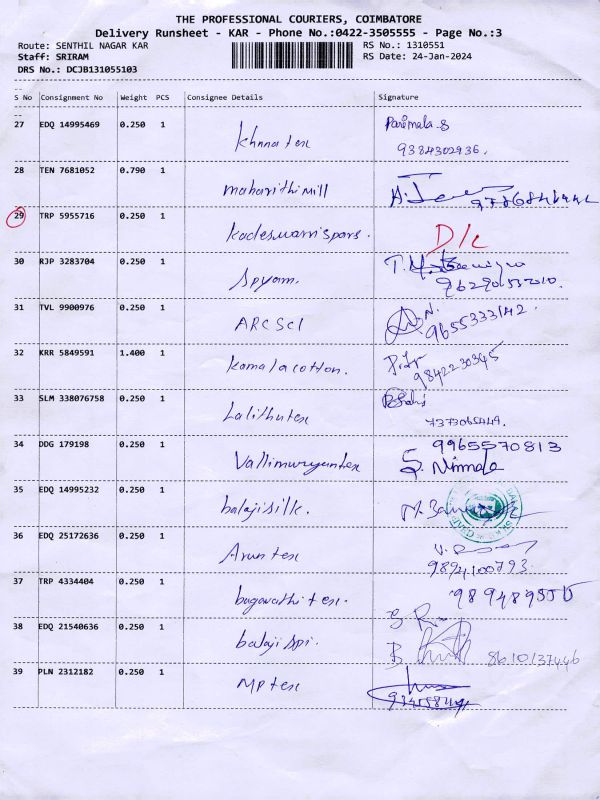 THE PROFESSIONAL COURIERS, COIMBATORE
Delivery Runsheet - KAR - Phone No.:0422-3505555 - Page No.:3
Route: SENTHIL NAGAR KAR
RS No.: 1310551
Staff: SRIRAM
RS Date: 24-Jan-2024
DRS No.: DCJB131055103
S No Consignment No Weight PCS Consignee Details Signature
27 EDQ 14995469 0.250 1 Parimala.S
9384302936.
28 TEN 7681052 0.790 1 maharithi mill
29 TRP 5955716 0.250 1 D/L
30 RJP 3283704 0.250 1 Spyarn.
31 TVL 9900976 0.250 1 ARC SCI N.
9655333142.
32 KRR 5849591 1.400 1 Kamala cotton.
9842230345
33 SLM 338076758 0.250 1 Lalithatex
34 DDG 179198 0.250 1 9965570813
S. Nirmala
35 EDQ 14995232 0.250 1 balaji silk.
36 EDQ 25172636 0.250 1 Arun tex
9894100793.
37 TRP 4334404 0.250 1 bagavathi tex.
38 EDQ 21540636 0.250 1 balaji spi.
8610137446
39 PLN 2312182 0.250 1 MP tex